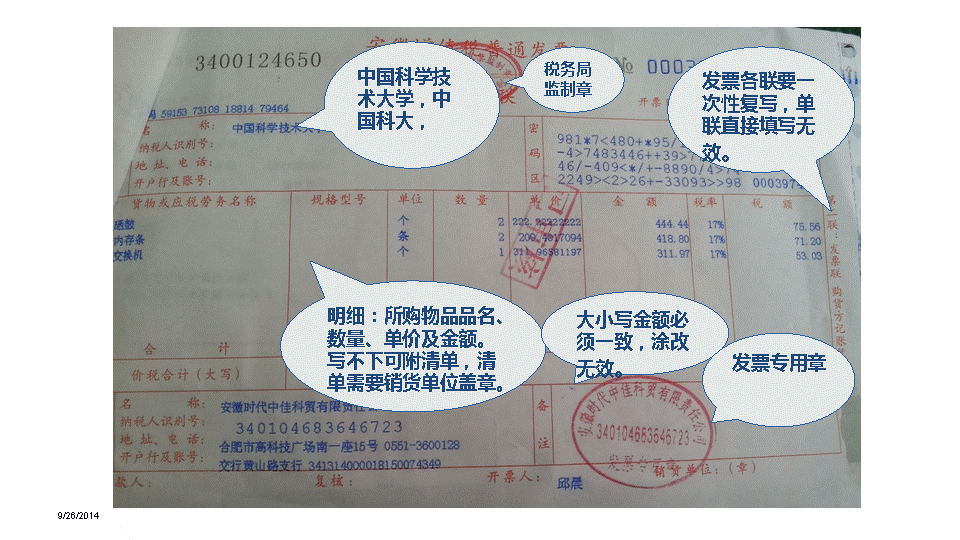 安徽增值税普通发票
3400124650
№ 0003
中国科学技
术大学，中
国科大，
税务局
监制章
发票各联要一
次性复写，单
联直接填写无
效。
开票
码 59153 73108 18814 79464
名 称： 中国科学技术大学
纳税人识别号：
地 址、电 话：
开户行及账号：
密
码
区
981*7<480+*95/
-4>7483446++39>7
46/-409<*/+-8890/4>74
2249><2>26+-33093>>98 0003974
货物或应税劳务名称 规格型号 单位 数 量 单 价 金 额 税率 税 额
硒鼓 个 2 222.22222222 444.44 17% 75.56
内存条 条 2 209.4017094 418.80 17% 71.20
交换机 个 1 311.96581197 311.97 17% 53.03
第一联：发票联 购货方记账
明细：所购物品品名、
数量、单价及金额。
写不下可附清单，清
单需要销货单位盖章。
大小写金额必
须一致，涂改
无效。
发票专用章
合 计
价税合计（大写）
名 称： 安徽时代中佳科贸有限责任公
纳税人识别号： 340104683646723
地 址、电 话： 合肥市高科技广场南一座15号 0551-3600128
开户行及账号： 交行黄山路支行 341314000018150074349
备
注
安徽时代中佳科贸有限责任公司
340104683646723
发票专用章
款人： 复核： 开票人： 邱晨 销货单位：（章）
9/26/2014